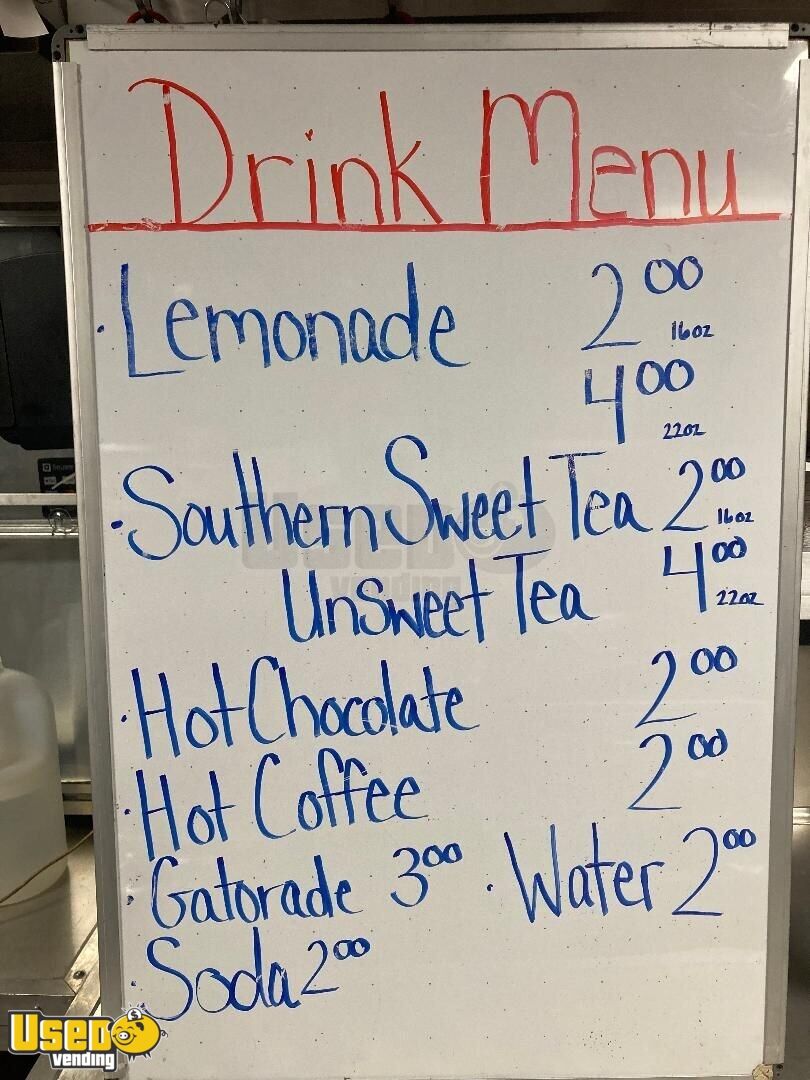 Drink Menu
· Lemonade 2.00 16oz
4.00 22oz
· Southern Sweet Tea 2.00 16oz
Unsweet Tea 4.00 22oz
· Hot Chocolate 2.00
· Hot Coffee 2.00
· Gatorade 3.00 · Water 2.00
· Soda 2.00
Used vending
Used vending